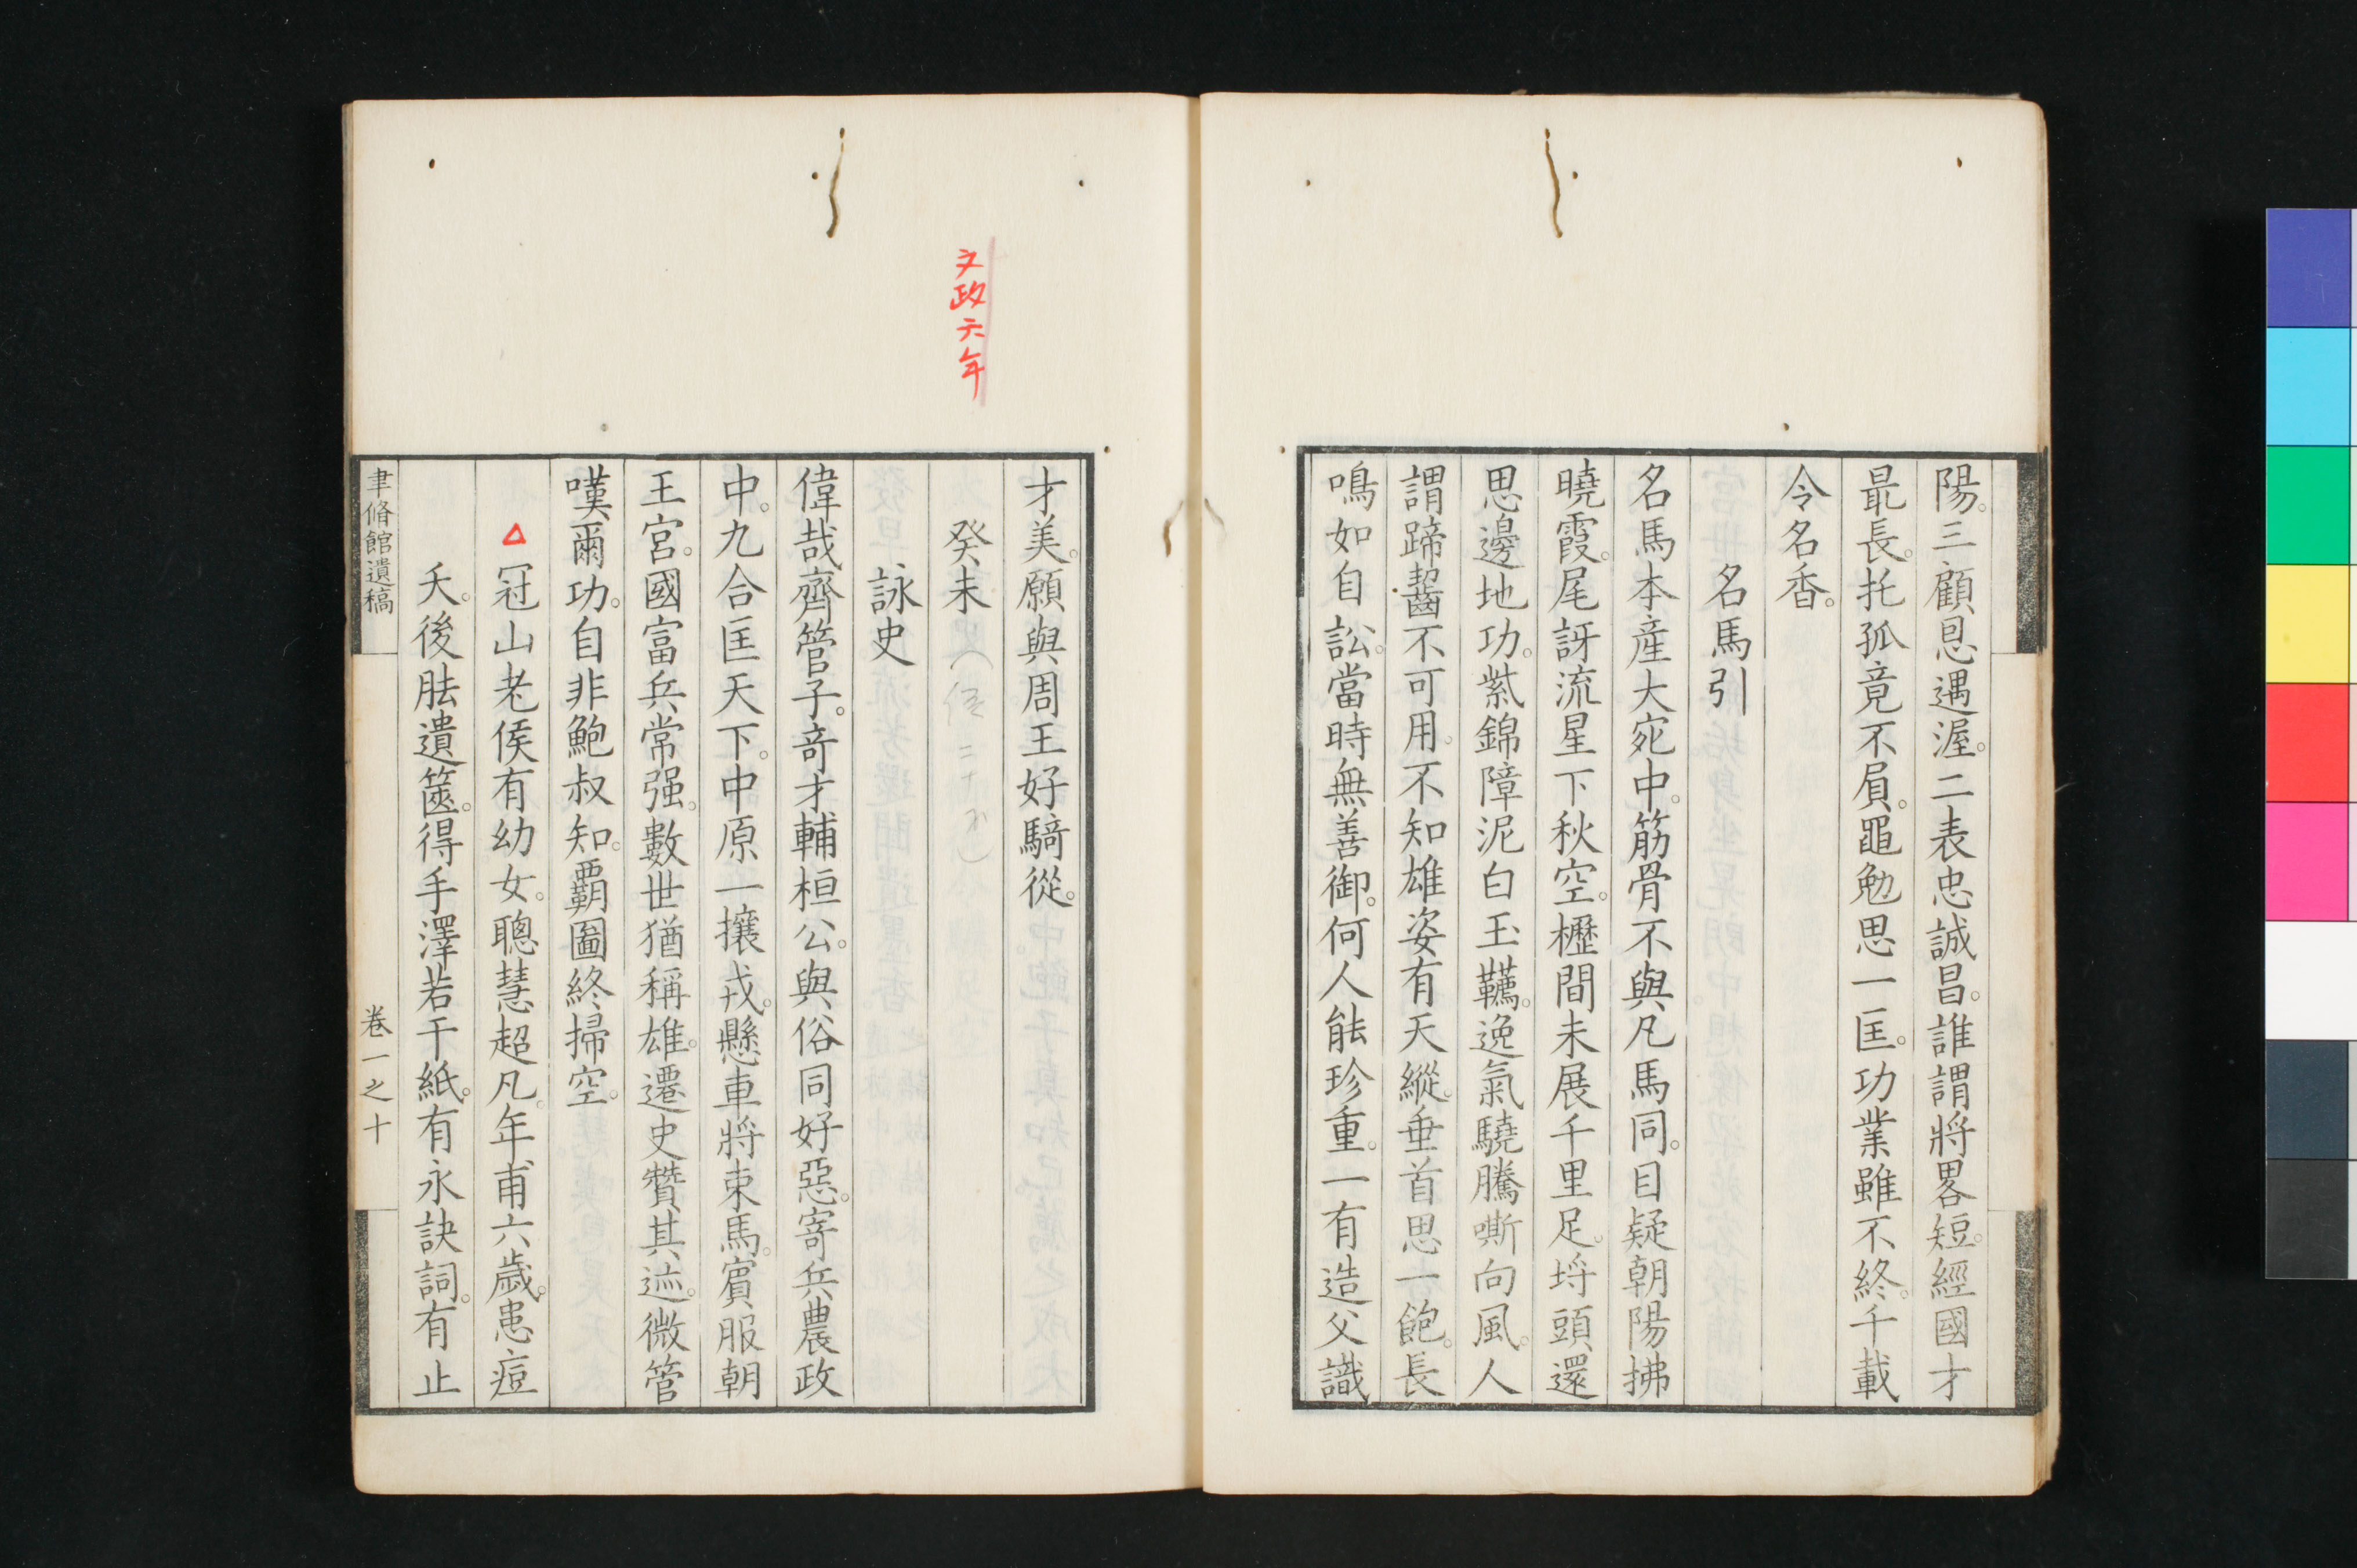 陽。三顧恩遇渥。二表忠誠昌。誰謂將畧短。經國才
最長。托孤竟不屓。黽勉思一匡。功業雖不終。千載
令名香。
名馬引
名馬本産大宛中。筋骨不與凡馬同。目疑朝陽拂
曉霞。尾訝流星下秋空。櫪間未展千里足。埒頭還
思邊地功。紫錦障泥白玉韉。逸氣驍騰嘶向風。人
謂蹄齧不可用。不知雄姿有天縱。垂首思一飽。長
鳴如自訟。當時無善御。何人能珍重。一有造父識
才美。願與周王好騎從。
文政六年
癸未
詠史
偉哉齊管子。竒才輔桓公。與俗同好惡。寄兵農政
中。九合匡天下。中原一攘戎。懸車將束馬。賔服朝
王宮。國富兵常强。數世猶稱雄。遷史贊其迹。微管
嘆爾功。自非鮑叔知。覇圖終掃空。
冠山老侯有幼女。聰慧超凡。年甫六歲。患痘
夭。後胠遺篋。得手澤若干紙。有永訣詞。有止
聿脩館遺稿
卷一之十